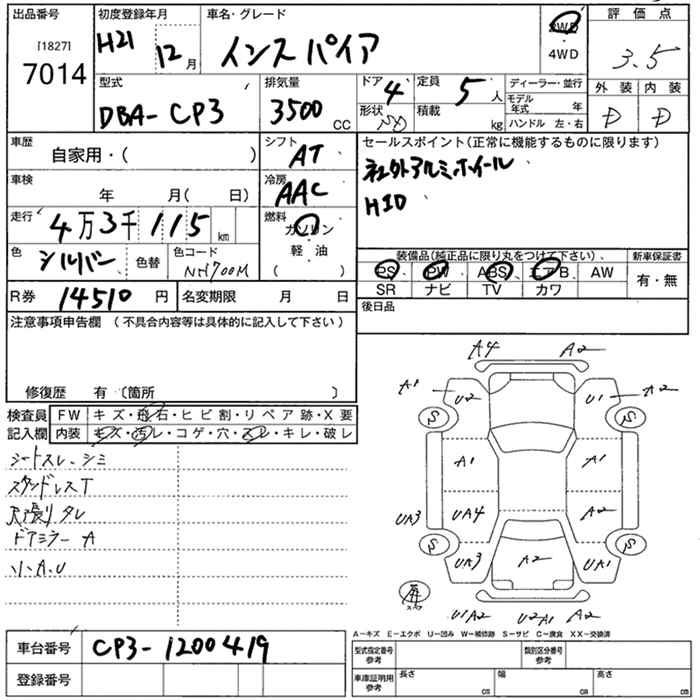 出品番号
[1827]
7014
初度登録年月
H21 12月
車名・グレード
インスパイア
2WD
4WD
評価点
3.5
型式
DBA-CP3
排気量
3500 CC
ドア 4
形状
定員 5 人
積載 kg
ディーラー・並行
モデル年式 年
ハンドル 左・右
外装 内装
D D
車歴
自家用・( )
シフト
AT
セールスポイント(正常に機能するものに限ります)
社外アルミホイール
HID
車検
年 月( 日)
冷房
AAC
走行
4万3千115 km
燃料
ガソリン
軽・油
( )
色
シルバー
色替
色コード
NH700M
装備品(純正品に限り丸をつけて下さい)、
PS PW ABS エアB AW
SR ナビ TV カワ
新車保証書
有・無
R券 14510 円
名変期限 月 日
後日品
注意事項申告欄 (不具合内容等は具体的に記入して下さい)
修復歴 有 〔箇所 〕
検査員記入欄
FW キズ・飛石・ヒビ割・リペア跡・X要
内装 キズ・汚レ・コゲ・穴・スレ・キレ・破レ
シートスレ、シミ
スタンドレスT
天張りタレ
ドアミラー A
小A.U
A4 A2
A1 U2 U1 A2
S S
A1 A1
UA3 UA4 A2
S S
UA3 A2 UA1
U1A2 U2A1 A2
A-キズ E-エクボ U-凹み W-補修跡 S-サビ C-腐食 XX-交換済
車台番号
CP3-1200419
登録番号
型式指定番号
参考
類別区分番号
参考
車庫証明用
参考
長さ cm
幅 cm
高さ cm